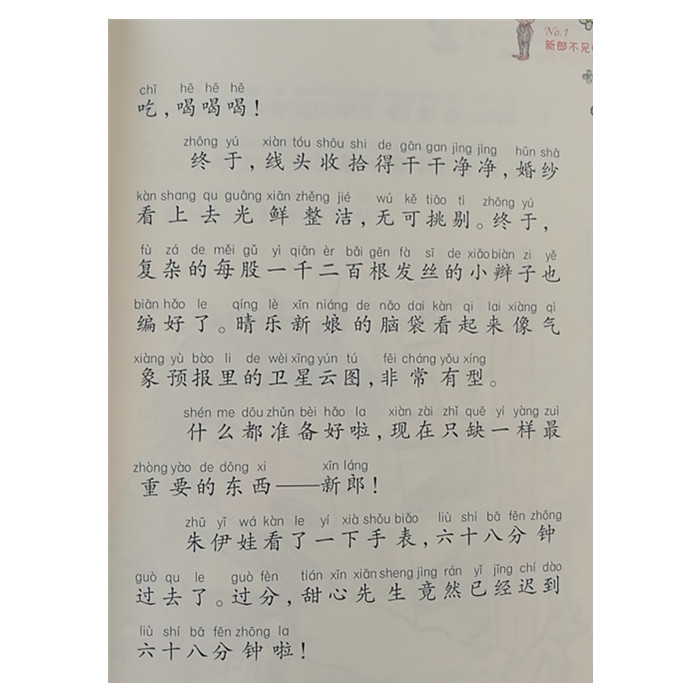 No.1
新郎不见
chī hē hē hē
吃,喝喝喝!
zhōng yú xiàn tóu shōu shi de gān gan jìng jìng hūn shā
终于,线头收拾得干干净净,婚纱
kàn shang qu guāng xiān zhěng jié wú kě tiāo tì zhōng yú
看上去光鲜整洁,无可挑剔。终于,
fù zá de měi gǔ yì qiān èr bǎi gēn fà sī de xiǎo biàn zi yě
复杂的每股一千二百根发丝的小辫子也
biān hǎo le qíng lè xīn niáng de nǎo dai kàn qi lai xiàng qì
编好了。晴乐新娘的脑袋看起来像气
xiàng yù bào li de wèi xīng yún tú fēi cháng yǒu xíng
象预报里的卫星云图,非常有型。
shén me dōu zhǔn bèi hǎo la xiàn zài zhǐ quē yí yàng zuì
什么都准备好啦,现在只缺一样最
zhòng yào de dōng xi xīn láng
重要的东西——新郎!
zhū yī wá kàn le yí xià shǒu biǎo liù shí bā fēn zhōng
朱伊娃看了一下手表,六十八分钟
guò qu le guò fèn tián xīn xiān sheng jìng rán yǐ jīng chí dào
过去了。过分,甜心先生竟然已经迟到
liù shí bā fēn zhōng la
六十八分钟啦!